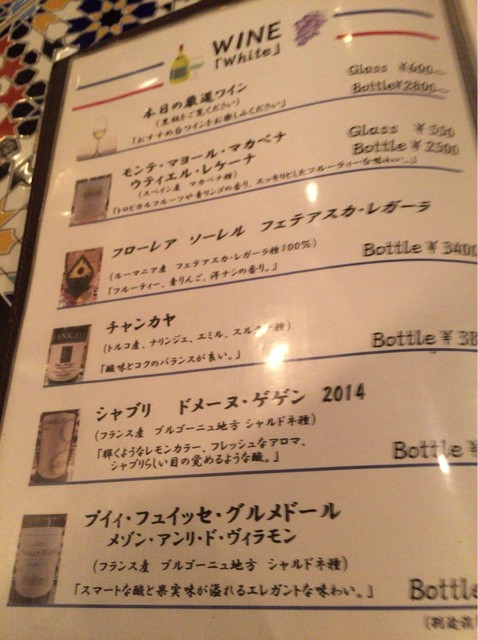 WINE
「White」
本日の厳選ワイン
Glass ¥600
(黒板をご覧ください)
Bottle¥2800
「おすすめ白ワインをお楽しみください」
モンテ・マヨール・マカベナ
Glass ¥550
ウティエル・レケーナ
Bottle ¥2500
(スペイン産 マカベナ種)
「トロピカルフルーツや青リンゴの香り、スッキリとしたフルーティーな味わい。」
フローレア ソーレル フェテアスカ・レガーラ
(ルーマニア産 フェテアスカ・レガーラ種100%)
Bottle ¥3400
「フルーティー、青りんご、洋ナシの香り。」
チャンカヤ
(トルコ産、ナリンジェ、エミル、スルタ 種)
Bottle ¥38
「酸味とコクのバランスが良い。」
シャブリ ドメーヌ・ゲゲン 2014
(フランス産 ブルゴーニュ地方 シャルドネ種)
「輝くようなレモンカラー、フレッシュなアロマ、
Bottle ¥
シャブリらしい目の覚めるような酸。」
プイィ・フュイッセ・グルメドール
メゾン・アンリ・ド・ヴィラモン
(フランス産 ブルゴーニュ地方 シャルドネ種)
「スマートな酸と果実味が溢れるエレガントな味わい。」
Bottle